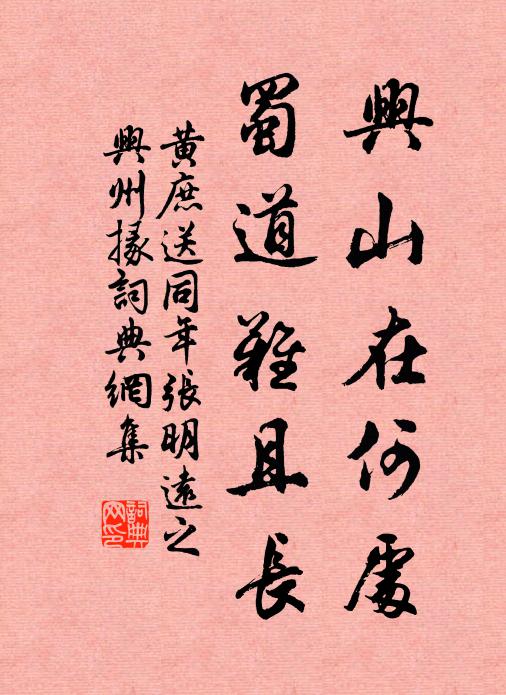 興山在何處
蜀道難且長
黄庶送同年張明遠之
興州掾詞典網集
詞典网印